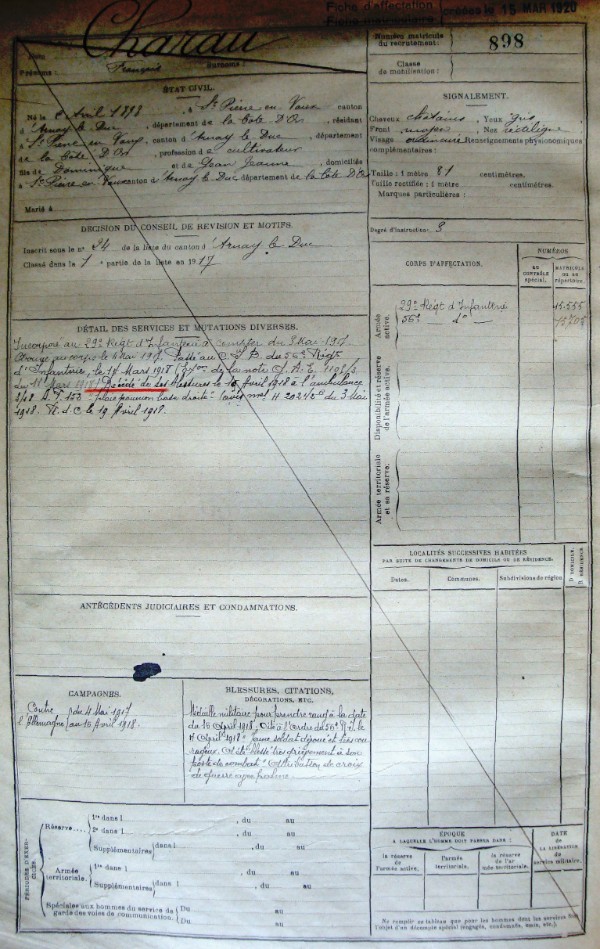 Fiche d'affectation
Fiche matriculaire créées le 15 MAR 1920
Nom :
Charau
Prénoms : François Surnoms :
Numéro matricule
du recrutement : 898
Classe
de mobilisation :
ÉTAT CIVIL.
Né le Avril 1898, à St Pierre en Vaux canton
d'Arnay le Duc, département de la Côte d'Or, résidant
à St Pierre en Vaux canton d'Arnay le Duc, département
de la Côte d'Or, profession de cultivateur
fils de Dominique et de Jean Jeanne, domiciliés
à St Pierre en Vaux canton d'Arnay le Duc département de la Côte d'Or
Marié à
SIGNALEMENT.
Cheveux chatains, Yeux gris
Front moyen, Nez rectiligne
Visage ordinaire Renseignements physionomiques
complémentaires :
Taille : 1 mètre 81 centimètres.
Taille rectifiée : 1 mètre centimètres.
Marques particulières :
Degré d'instruction : 3
DÉCISION DU CONSEIL DE RÉVISION ET MOTIFS.
Inscrit sous le n° 24 de la liste du canton d'Arnay le Duc
Classé dans la 1e partie de la liste en 1917
CORPS D'AFFECTATION.
NUMÉROS
AU CONTRÔLE SPÉCIAL.
MATRICULE OU AU RÉPERTOIRE.
Armée active.
29e Régt d'Infanterie 15.555
56e do
Disponibilité et réserve de l'armée active.
Armée territoriale et sa réserve.
DÉTAIL DES SERVICES ET MUTATIONS DIVERSES.
Incorporé au 29e Régt d'Infanterie à compter du Mai 1917.
Arrivé au corps le 4 Mai 1917. Passé au C.I.D. du 56e Régt
d'Infanterie, le 14 Mars 1918 de la note 1198/3
du 11 Mars 1918. Décédé de ses blessures le 15 Avril 1918 à l'ambulance
2/18 S.P. 153 - plaie poumon base droite - avis mel du 3 Mai
1918. R. d. C. le 19 Avril 1918.
LOCALITÉS SUCCESSIVES HABITÉES
PAR SUITE DE CHANGEMENTS DE DOMICILE OU DE RÉSIDENCE.
Dates. Communes. Subdivisions de région
D DOMICILE.
R RÉSIDENCE
ANTÉCÉDENTS JUDICIAIRES ET CONDAMNATIONS.
CAMPAGNES.
Contre du 4 Mai 1917
l'Allemagne au 15 Avril 1918.
BLESSURES, CITATIONS,
DÉCORATIONS, ETC.
Médaille militaire pour prendre rang à la date
du 15 Avril 1918, Cité à l'ordre du 56e R.I. le
Avril 1918 : Jeune soldat dévoué et très cou-
rageux. A été blessé très grièvement à son
poste de combat. Attribution de croix
de guerre
PÉRIODES D'EXERCICES.
Réserve....
1re dans l , du au
2e dans l , du au
Supplémentaires dans l , du au
Armée
territoriale.
1re dans l , du au
Supplémentaires dans l , du au
Spéciales aux hommes du service de
garde des voies de communication.
Du au
Du au
ÉPOQUE
A LAQUELLE L'HOMME DOIT PASSER DANS :
la réserve de l'armée active.
l'armée territoriale.
la réserve de l'ar mée territoriale.
DATE
DE LA LIBÉRATION DU
service militaire.
Ne remplir ce tableau que pour les hommes dont les services font
l'objet d'un décompte spécial (engagés, condamnés, omis, etc.).